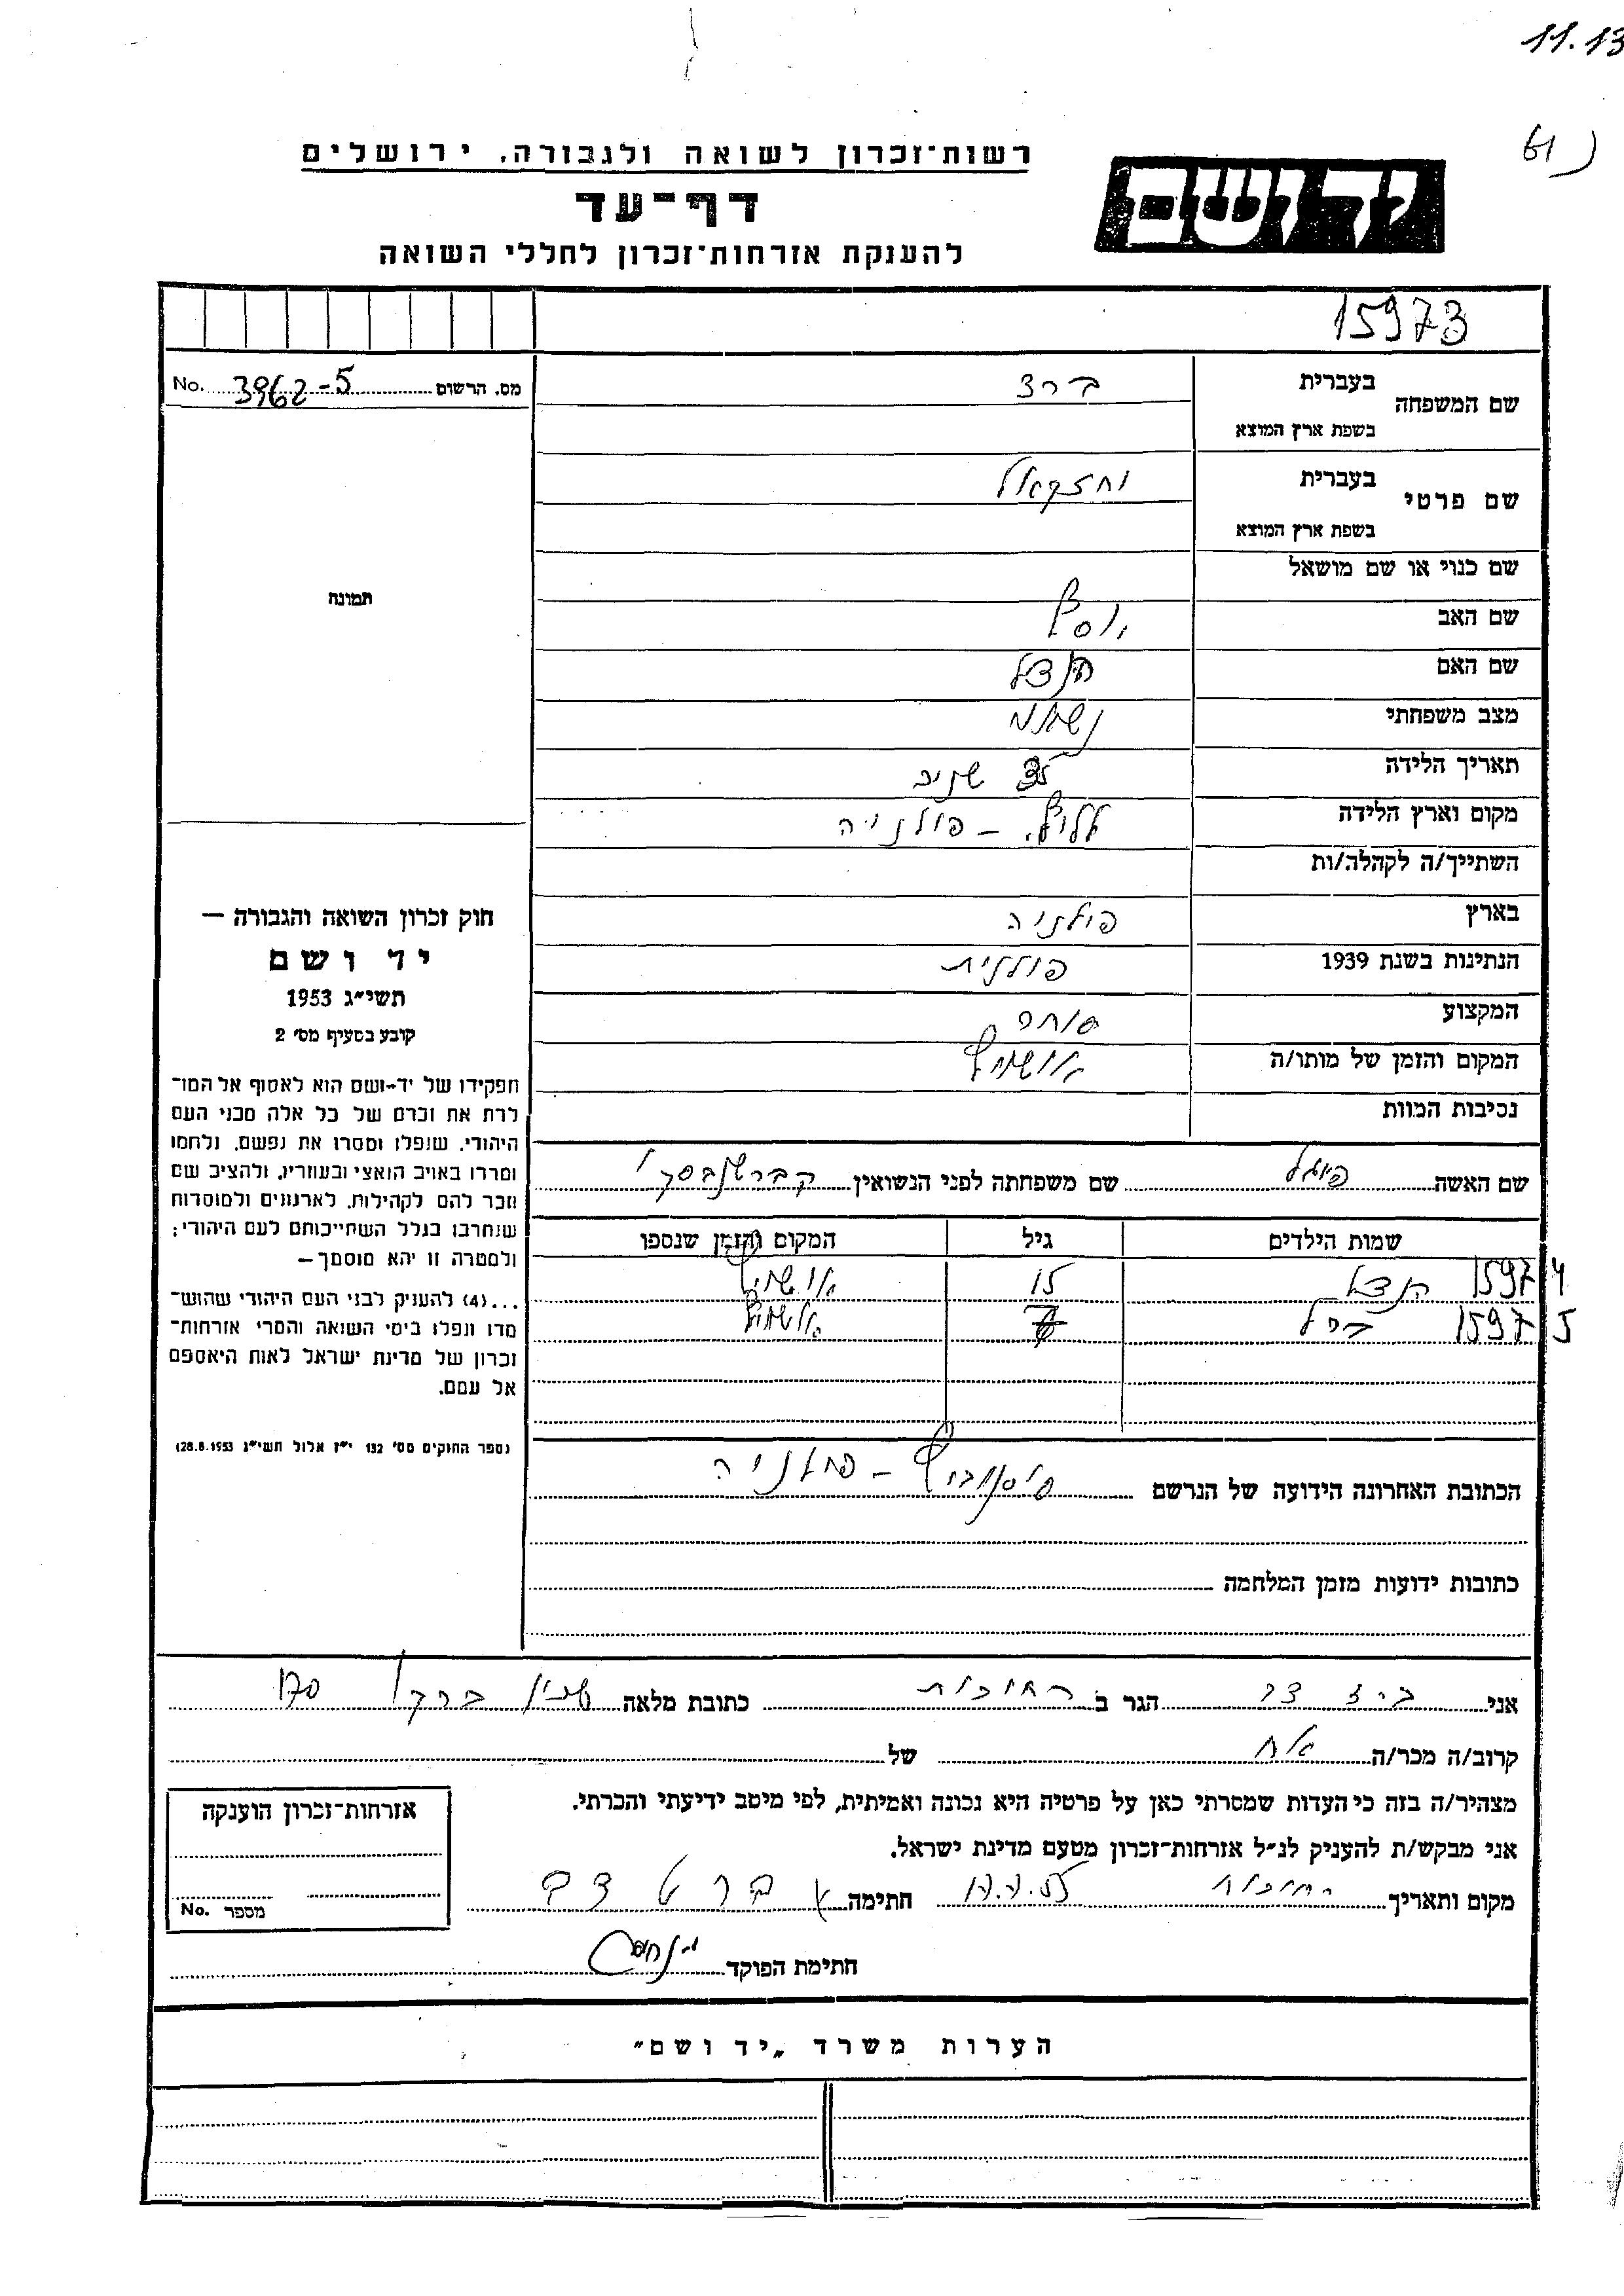 11.13
רשות־זכרון לשואה ולגבורה, ירושלים
יד ושם
דף־עד
להענקת אזרחות־זכרון לחללי השואה
15973
מס. הרשום 3962-5 No.
שם המשפחה בעברית
בשפת ארץ המוצא
שם פרטי בעברית יחזקאל
בשפת ארץ המוצא
שם כנוי או שם מושאל
תמונה
שם האב יוסף
שם האם הנצל
מצב משפחתי נשוי
תאריך הלידה
מקום וארץ הלידה פולניה
השתייך/ה לקהלה/ות
בארץ פולניה
הנתינות בשנת 1939 פולנית
המקצוע סוחר
המקום והזמן של מותו/ה אושויץ
נסיבות המוות
חוק זכרון השואה והגבורה —
יד ושם
תשי״ג 1953
קובע בסעיף מס׳ 2
תפקידו של יד-ושם הוא לאסוף אל המו־
לדת את זכרם של כל אלה מבני העם
היהודי, שנפלו ומסרו את נפשם, נלחמו
ומרדו באויב הנאצי ובעוזריו, ולהציב שם
וזכר להם לקהילות, לארגונים ולמוסדות
שנחרבו בגלל השתייכותם לעם היהודי;
ולמטרה זו יהא מוסמך—
...(4) להעניק לבני העם היהודי שהוש־
מדו ונפלו בימי השואה והמרי אזרחות־
זכרון של מדינת ישראל לאות היאספם
אל עמם.
(ספר החוקים מס׳ 132 י״ז אלול תשי״ג 28.8.1953)
שם האשה פייגל שם משפחתה לפני הנשואין
שמות הילדים גיל המקום והזמן שנספו
15974 הנצל 15 אושויץ
15975 ברל 7 אושויץ
הכתובת האחרונה הידועה של הנרשם פולניה
כתובות ידועות מזמן המלחמה
אני הגר ב רחובות כתובת מלאה
קרוב/ה מכר/ה אח של
מצהיר/ה בזה כי העדות שמסרתי כאן על פרטיה היא נכונה ואמיתית, לפי מיטב ידיעתי והכרתי.
אני מבקש/ת להעניק לנ״ל אזרחות־זכרון מטעם מדינת ישראל.
מקום ותאריך רחובות חתימה
חתימת הפוקד
אזרחות־זכרון הוענקה
מספר No.
הערות משרד „יד ושם״